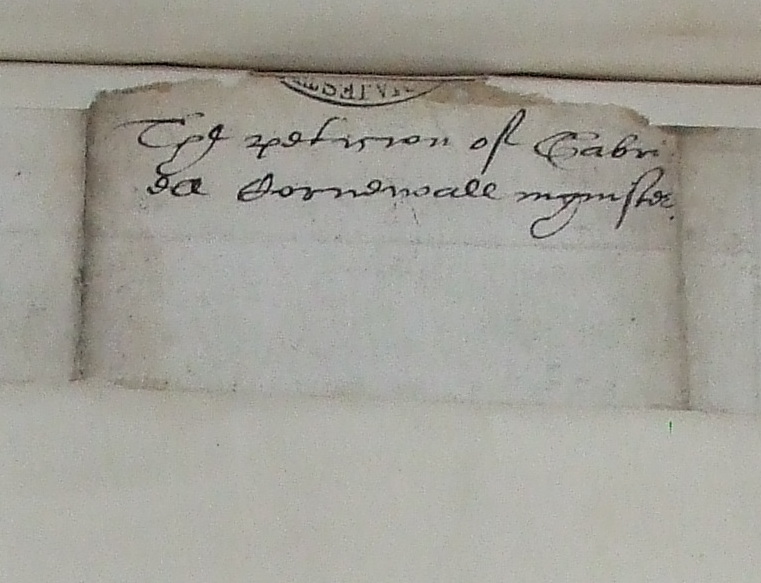 The peticion of Gabri
ell Cornewall mynister.